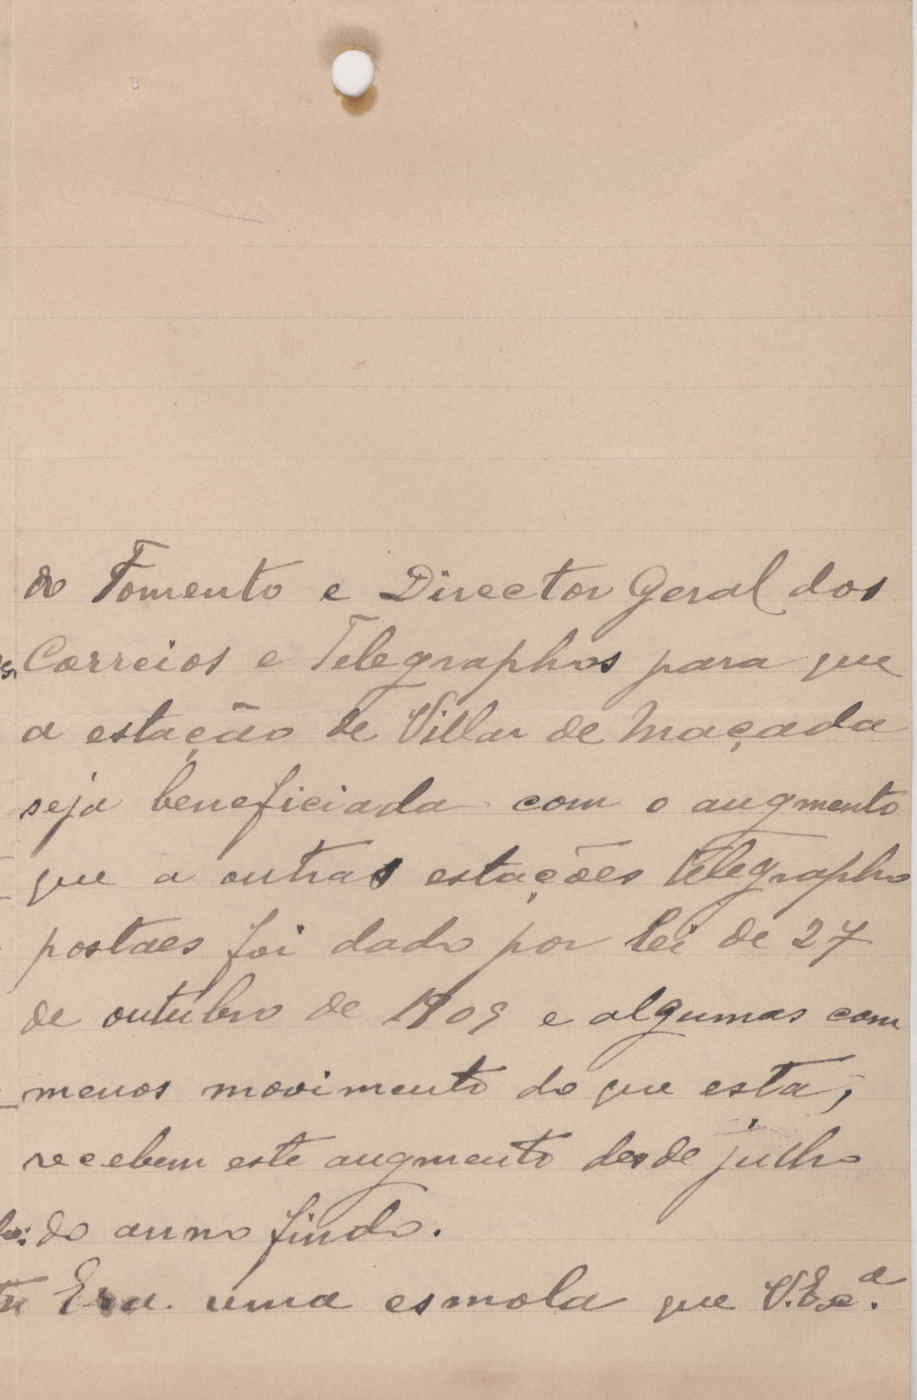 do Fomento e Director Geral dos
Correios e Telegraphos para que
a estação de Villar de Maçada
seja beneficiada com o augmento
que a outras estações telegrapho
postaes foi dado por lei de 27
de outubro de 1909 e algumas com
menos movimento do que esta,
recebem este augmento desde julho
do anno findo.
Era uma esmola que V. Ex.ª